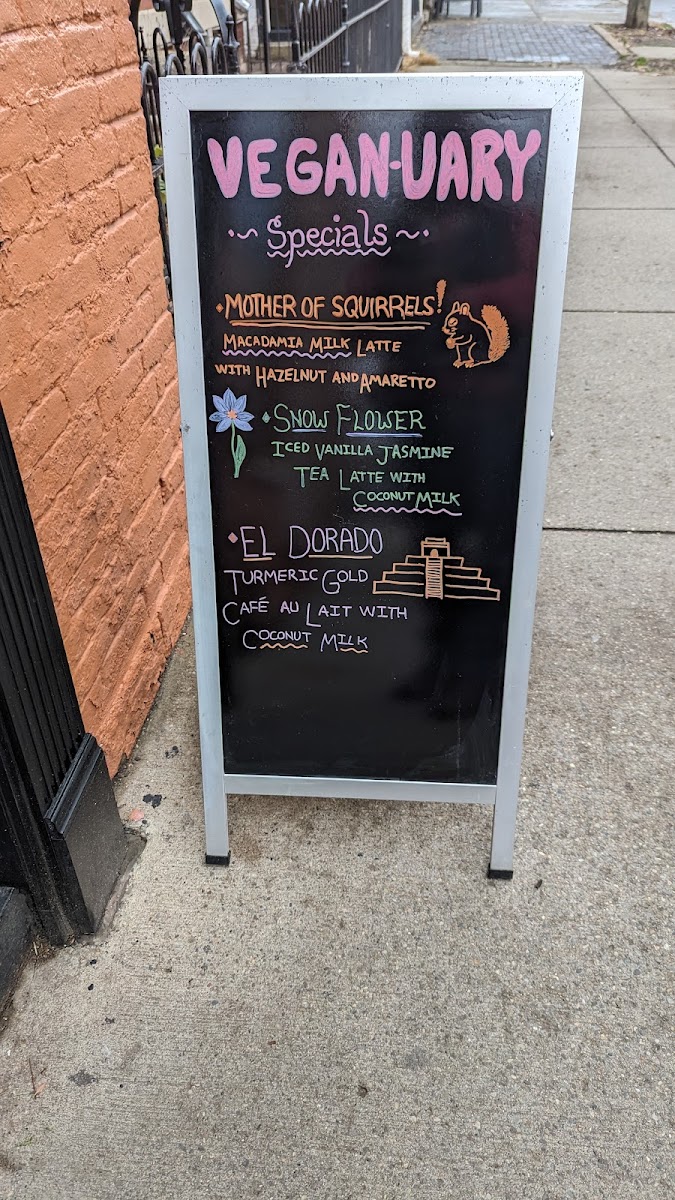 VEGAN-UARY
·~ Specials ~·
• MOTHER OF SQUIRRELS!
MACADAMIA MILK LATTE
WITH HAZELNUT AND AMARETTO
• SNOW FLOWER
ICED VANILLA JASMINE
TEA LATTE WITH
COCONUT MILK
• EL DORADO
TURMERIC GOLD
CAFÉ AU LAIT WITH
COCONUT MILK